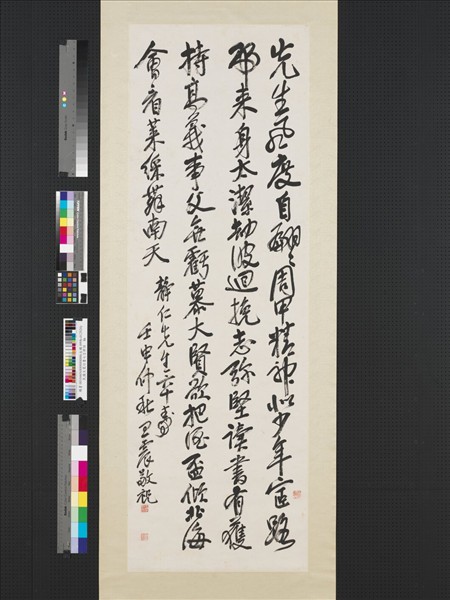 先生風度自翩翩周甲精神似少年宦路
歸來身太潔劫波迴挽志弥堅讀書有獲
持高義事父無虧慕大賢欲把酒盃傾北海
會看萊綵舞南天
靜仁先生六十壽
壬申仲秋王震敬祝